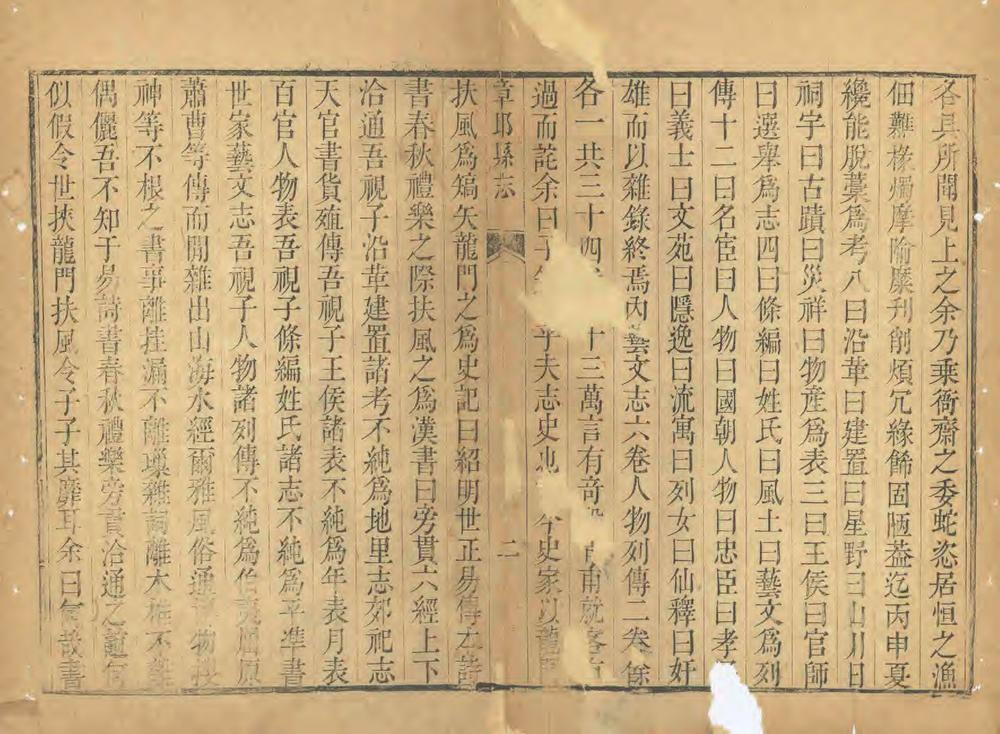 各具所聞見上之余乃乘衙齋之委蛇恣居恒之漁
佃難椽燭摩隃麋刋削煩冗緣餙固陋葢迄丙申夏
纔能脫藁爲考八曰沿革曰建置曰星野曰山川曰
祠宇曰古蹟曰災祥曰物產爲表三曰王侯曰官師
曰選舉爲志四曰條編曰姓氏曰風土曰藝文爲列
傳十二曰名宦曰人物曰國朝人物曰忠臣曰孝
曰義士曰文苑曰隱逸曰流寓曰列女曰仙釋曰奸
雄而以雜錄終焉內藝文志六卷人物列傳二卷餘
各一共三十四 十三萬言有奇 甫就客
過而詫余曰子 乎夫志史也 今史家以龍
章邱縣志 二
扶風爲篙矢龍門之爲史記曰紹明世正易傳本詩
書春秋禮樂之際扶風之爲漢書曰旁貫六經上下
洽通吾視子沿革建置諸考不純爲地里志郊祀志
天官書貨殖傳吾視子王侯諸表不純爲年表月表
百官人物表吾視子條編姓氏諸志不純爲平準書
世家藝文志吾視子人物諸列傳不純爲伯夷屈原
蕭曹等傳而間雜出山海水經爾雅風俗通 物搜
神等不根之書事離挂漏不離璅雜詞離木樁不離
偶儷吾不知于易詩書春秋禮樂旁貫洽通之誼何
似假令世挾龍門扶風令子子其靡耳余曰
哉書